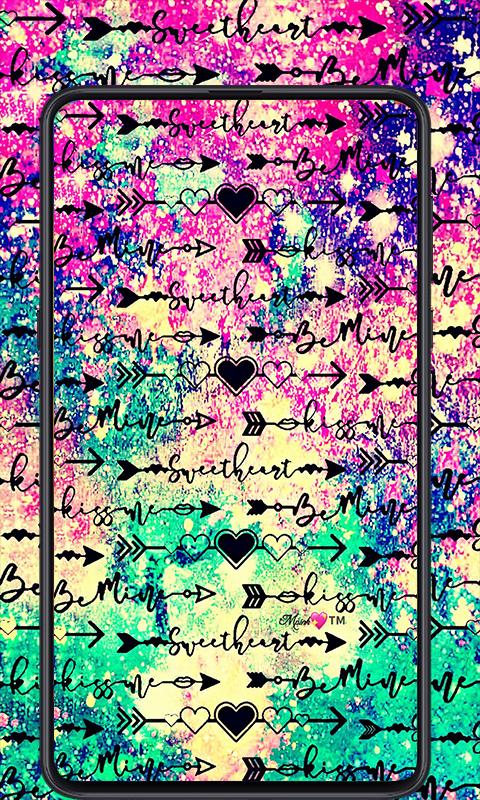 Sweetheart
kiss me Be Mine
Sweetheart
kiss me Be Mine
Be Mine kiss me
Sweetheart
kiss me Be Mine
Be Mine kiss me
Sweetheart
kiss me Be Mine
Be Mine kiss me
TM
Sweetheart
kiss me Be Mine
Be Mine kiss me